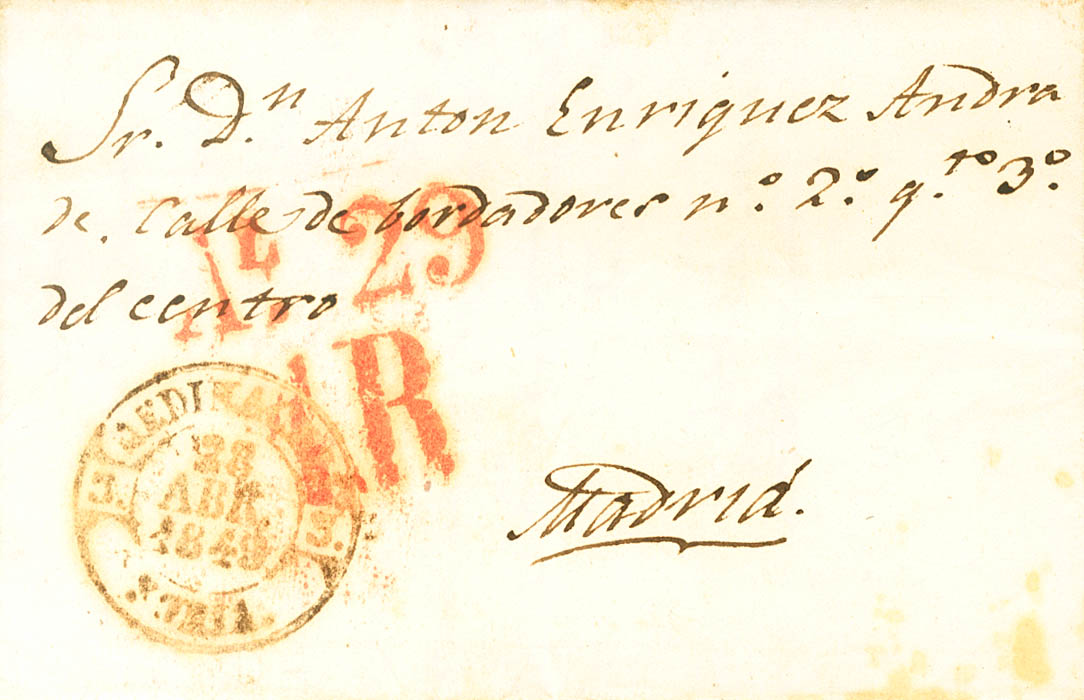 Sr. D.n Anton Enriquez Andra
de. Calle de bordadores n.º 2.º q.to 3.º
del centro
Al. 29
1R
28
ABR.
1849
Madrid.